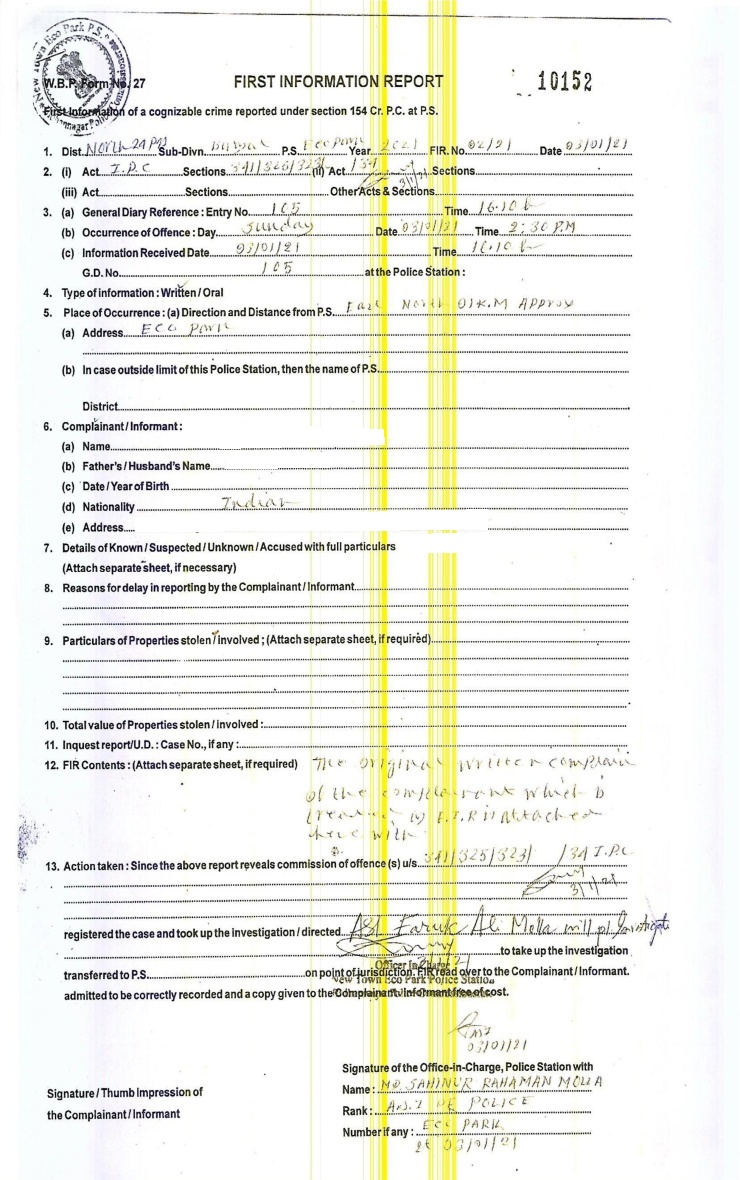 New Town Eco Park P.S.
W.B.P. Form No. 27
FIRST INFORMATION REPORT
10152
First Information of a cognizable crime reported under section 154 Cr. P.C. at P.S.
1. Dist. North 24 PGS Sub-Divn. P.S. Eco Park Year 2021 FIR. No. 02/21 Date 03/01/21
2. (i) Act I.P.C Sections 341/325/323 (ii) Act /34 Sections
3/1/21
(iii) Act Sections Other Acts & Sections
3. (a) General Diary Reference : Entry No. 105 Time 16.10 h
(b) Occurrence of Offence : Day Sunday Date 03/01/21 Time 2:30 P.M
(c) Information Received Date 03/01/21 Time 16.10 h
G.D. No. 105 at the Police Station :
4. Type of information : Written / Oral
5. Place of Occurrence : (a) Direction and Distance from P.S. East North 01 K.M Approx
(a) Address Eco Park
(b) In case outside limit of this Police Station, then the name of P.S.
District
6. Complainant / Informant :
(a) Name
(b) Father's / Husband's Name
(c) Date / Year of Birth
(d) Nationality Indian
(e) Address
7. Details of Known / Suspected / Unknown / Accused with full particulars
(Attach separate sheet, if necessary)
8. Reasons for delay in reporting by the Complainant / Informant
9. Particulars of Properties stolen / involved ; (Attach separate sheet, if required)
10. Total value of Properties stolen / involved :
11. Inquest report / U.D. : Case No., if any :
12. FIR Contents : (Attach separate sheet, if required) The original written complain
of the complainant which is
treated as F.I.R is attached
here with
13. Action taken : Since the above report reveals commission of offence (s) u/s. 341/325/323/ /34 I.P.C
3/1/21
registered the case and took up the investigation / directed ASI Faruk Ali Molla will pl. Investigate
to take up the investigation
Officer in Charge
transferred to P.S. on point of jurisdiction. FIR read over to the Complainant / Informant.
New Town Eco Park Police Station
admitted to be correctly recorded and a copy given to the Complainant / Informant free of cost.
03/01/21
Signature of the Office-in-Charge, Police Station with
Signature / Thumb Impression of
the Complainant / Informant
Name : MD. SAHINUR RAHAMAN MOLLA
Rank : A.S.I OF POLICE
Number if any : ECO PARK
03/01/21